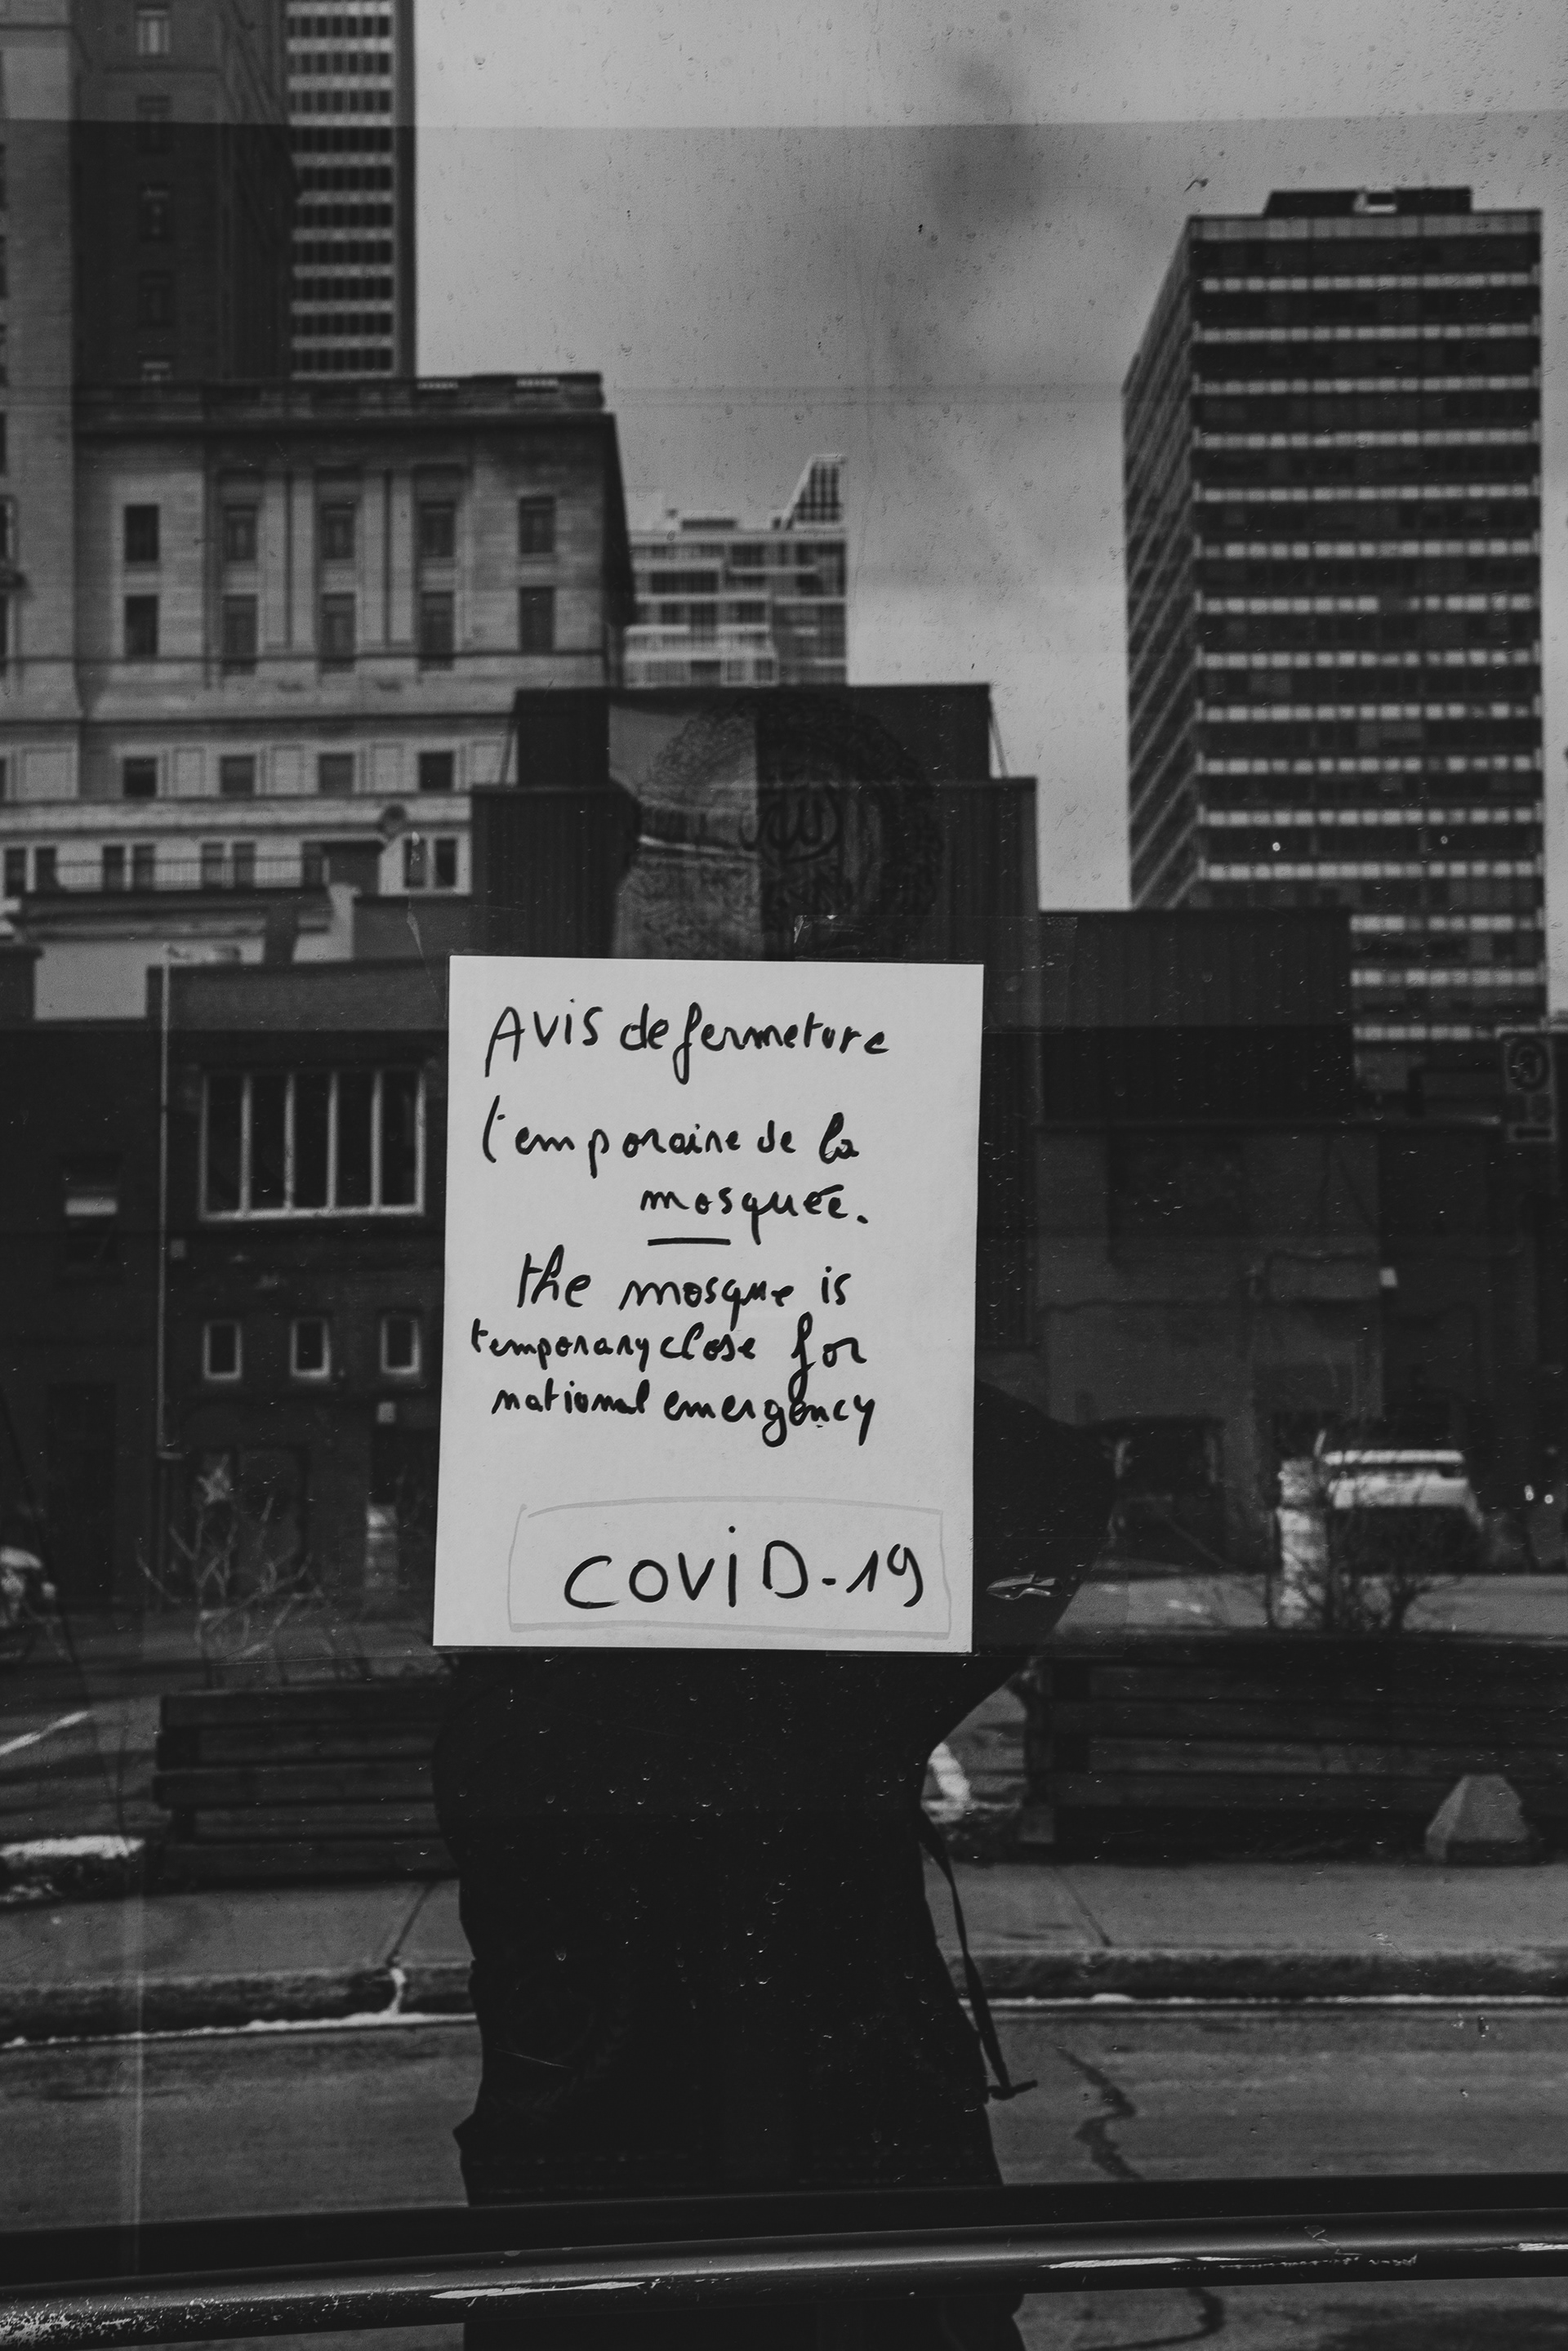 AVIS de fermeture
temporaire de la
mosquée.
the mosque is
temporary close for
national emergency
COVID-19
الله